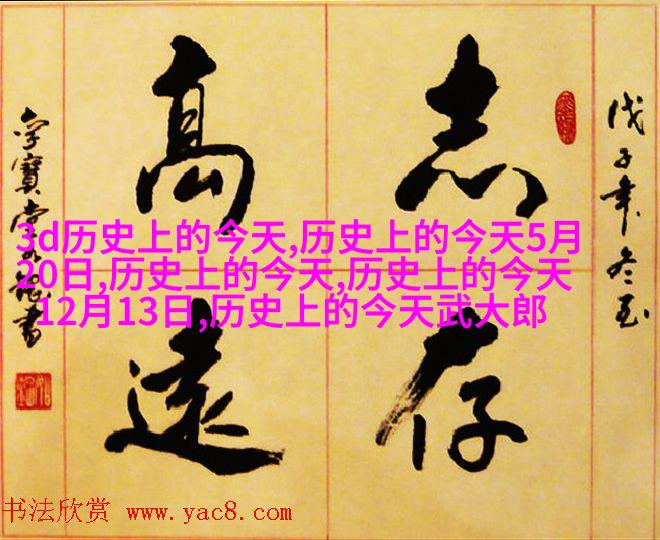 志存
高遠
戊子年冬至
3d历史上的今天,历史上的今天5月
20日,历史上的今天,历史上的今天
12月13日,历史上的今天武大郎
书法欣赏 www.yac8.com